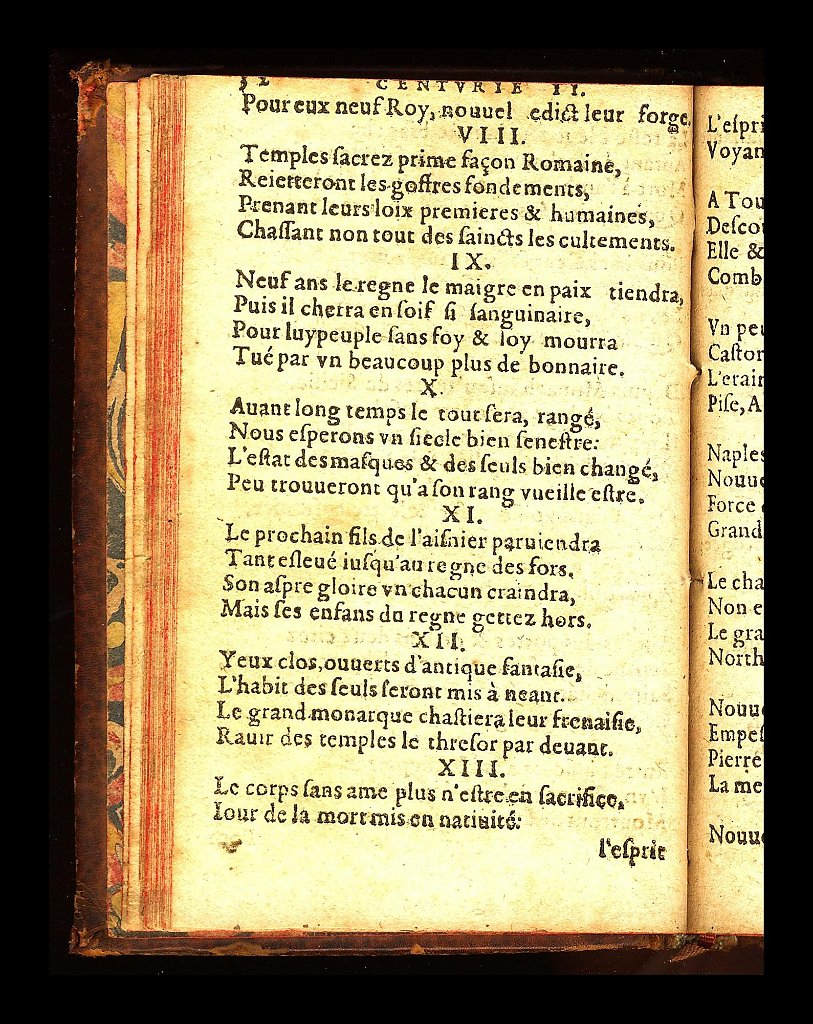 CENTVRIE II.
Pour eux neuf Roy, nouuel edict leur forge.
VIII.
Temples ſacrez prime façon Romaine,
Reietteront les goffres fondements,
Prenant leurs loix premieres & humaines,
Chaſſant non tout des ſaincts les cultements.
IX.
Neuf ans le regne le maigre en paix tiendra,
Puis il cherra en ſoif ſi ſanguinaire,
Pour luy peuple ſans foy & loy mourra
Tué par vn beaucoup plus de bonnaire.
X.
Auant long temps le tout ſera, rangé,
Nous eſperons vn ſiecle bien ſeneſtre:
L'eſtat des maſques & des ſeuls bien changé,
Peu trouueront qu'a ſon rang vueille eſtre.
XI.
Le prochain fils de l'aiſnier paruiendra
Tant eſleué iuſqu'au regne des fors.
Son aſpre gloire vn chacun craindra,
Mais ſes enfans du regne gettez hors.
XII.
Yeux clos, ouuerts d'antique fantaſie,
L'habit des ſeuls ſeront mis à neant.
Le grand monarque chaſtiera leur frenaiſie,
Rauir des temples le threſor par deuant.
XIII.
Le corps ſans ame plus n'eſtre en ſacrifice,
Iour de la mort mis en natiuité:
l'eſprit
L'eſpri
Voyan
A Tou
Deſco
Elle &
Comb
Vn peu
Caſtor
L'erair
Piſe, A
Naples
Nouue
Force
Grand
Le cha
Non e
Le gra
North
Nouu
Empeſ
Pierre
La me
Nouu